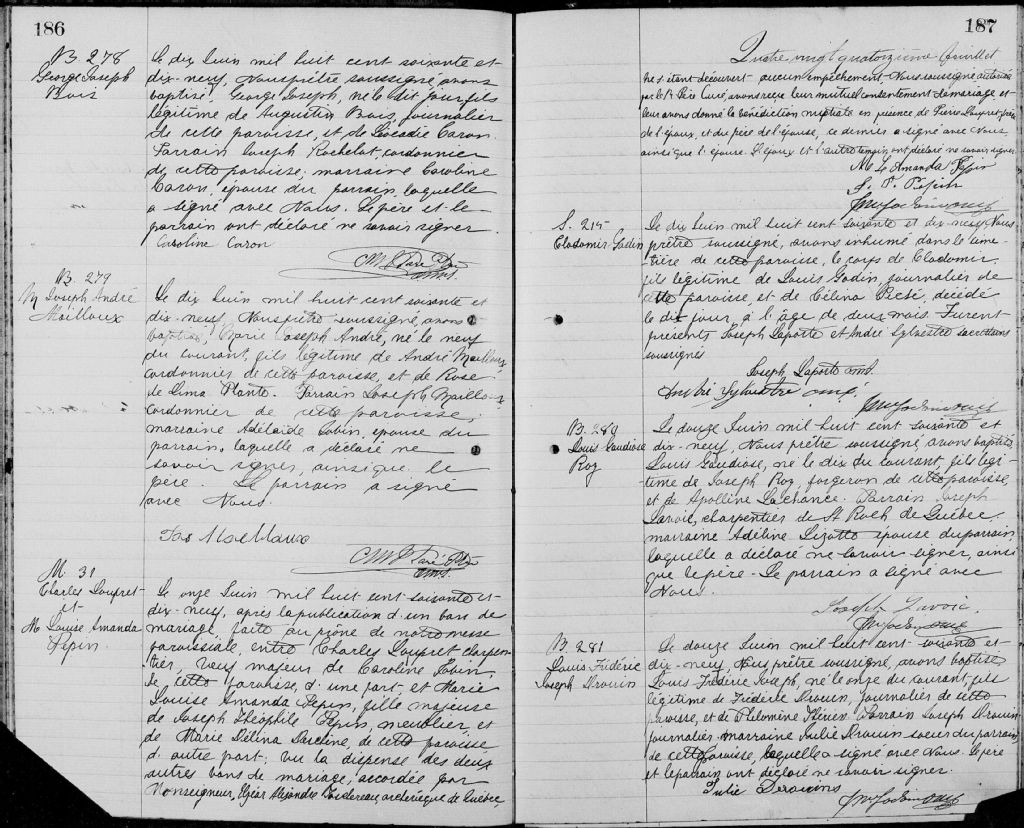 186
B. 278
George Joseph
Bois
Le dix Juin mil huit cent soixante et
dix-neuf, Nous prêtre soussigné, avons
baptisé, George Joseph, né le dit jour, fils
légitime de Augustin Bois, journalier
de cette paroisse, et de Léocadie Caron.
Parrain Joseph Rochelot, cordonnier
de cette paroisse; marraine Caroline
Caron, épouse du parrain, laquelle
a signé avec Nous. Le père et le
parrain ont déclaré ne savoir signer.
Caroline Caron
B. 279
M Joseph André
Mailloux
Le dix Juin mil huit cent soixante et
dix-neuf, Nous prêtre soussigné, avons
baptisé, Marie Joseph André, né le neuf
du courant, fils légitime de André Mailloux
cordonnier de cette paroisse, et de Rose
de Lima Plante. Parrain Joseph Mailloux
cordonnier de cette paroisse;
marraine Adélaïde Tobin, épouse du
parrain, laquelle a déclaré ne
savoir signer, ainsi que le
père. Le parrain a signé
avec Nous.
Jos Mailloux
M. 31
Charles Doupret
et
M Louise Amanda
Pepin
Le onze Juin mil huit cent soixante et
dix-neuf, après la publication d'un ban de
mariage, faite au prône de notre messe
paroissiale, entre Charles Doupret charpen-
tier, veuf majeur de Caroline Tobin,
de cette paroisse, d'une part, et Marie
Louise Amanda Pepin, fille majeure
de Joseph Théophile Pepin, meublier, et
de Marie Délina, de cette paroisse
d'autre part; vu la dispense des deux
autres bans de mariage, accordée par
Monseigneur, Elzéar Alexandre Taschereau, archevêque de Québec,
187
Quatre vingt quatorzième feuillet
ne s'étant découvert aucun empêchement, Nous soussigné autorisé
par le Rév. Père Curé, avons reçu leur mutuel consentement de mariage et
leur avons donné la bénédiction nuptiale en présence de Pierre Doupret, frère
de l'époux, et du père de l'épouse, ce dernier a signé avec Nous
ainsi que l'épouse. L'époux et l'autre témoin ont déclaré ne savoir signer
M L Amanda Pepin
J. T. Pepin
S. 215
Clodomir Godin
Le dix Juin mil huit cent soixante et dix-neuf, Nous
prêtre soussigné, avons inhumé dans le cime-
tière de cette paroisse, le corps de Clodomir,
fils légitime de Louis Godin, journalier de
cette paroisse, et de Célina Piché, décédé
le dix jour, à l'âge de deux mois. Furent
présents Joseph Laporte et André Sylvestre sacristains
soussignés
Joseph Laporte
André Sylvestre
B. 280
Louis Gaudiose
Roy
Le douze Juin mil huit cent soixante et
dix-neuf, Nous prêtre soussigné, avons baptisé
Louis Gaudiose, né le dix du courant, fils légi-
time de Joseph Roy, forgeron de cette paroisse,
et de Apolline Lachance. Parrain Joseph
Lavoie, charpentier de St Roch de Québec,
marraine Adéline Lizotte épouse du parrain,
laquelle a déclaré ne savoir signer, ainsi
que le père. Le parrain a signé avec
Nous.
Joseph Lavoie.
B. 281
Louis Frédéric
Joseph Drouin
Le douze Juin mil huit cent soixante et
dix-neuf, Nous prêtre soussigné, avons baptisé
Louis Frédéric Joseph, né le onze du courant, fils
légitime de Frédéric Drouin, journalier de cette
paroisse, et de Philomène. Parrain Joseph Drouin
journalier. marraine Julie Drouin soeur du parrain
de cette paroisse, laquelle a signé avec Nous. Le père
et le parrain ont déclaré ne savoir signer.
Julie Derouins